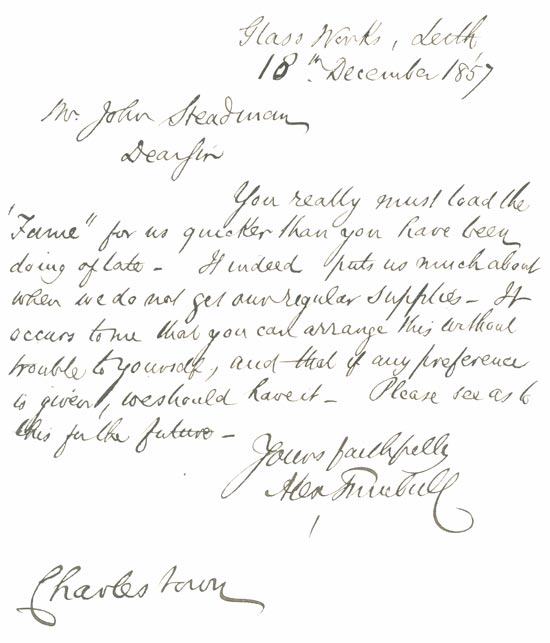 Glass Works, Leith,
18th December 1857
Mr. John Steadman
Dear Sir
You really must load the
"Fame" for us quicker than you have been
doing of late - It indeed puts us much about
when we do not get our regular supplies - It
occurs to me that you can arrange this without
trouble to yourself, and that if any preference
is given, we should have it - Please see as to
this for the future -
Yours faithfully
Alex Turnbull
Charlestown